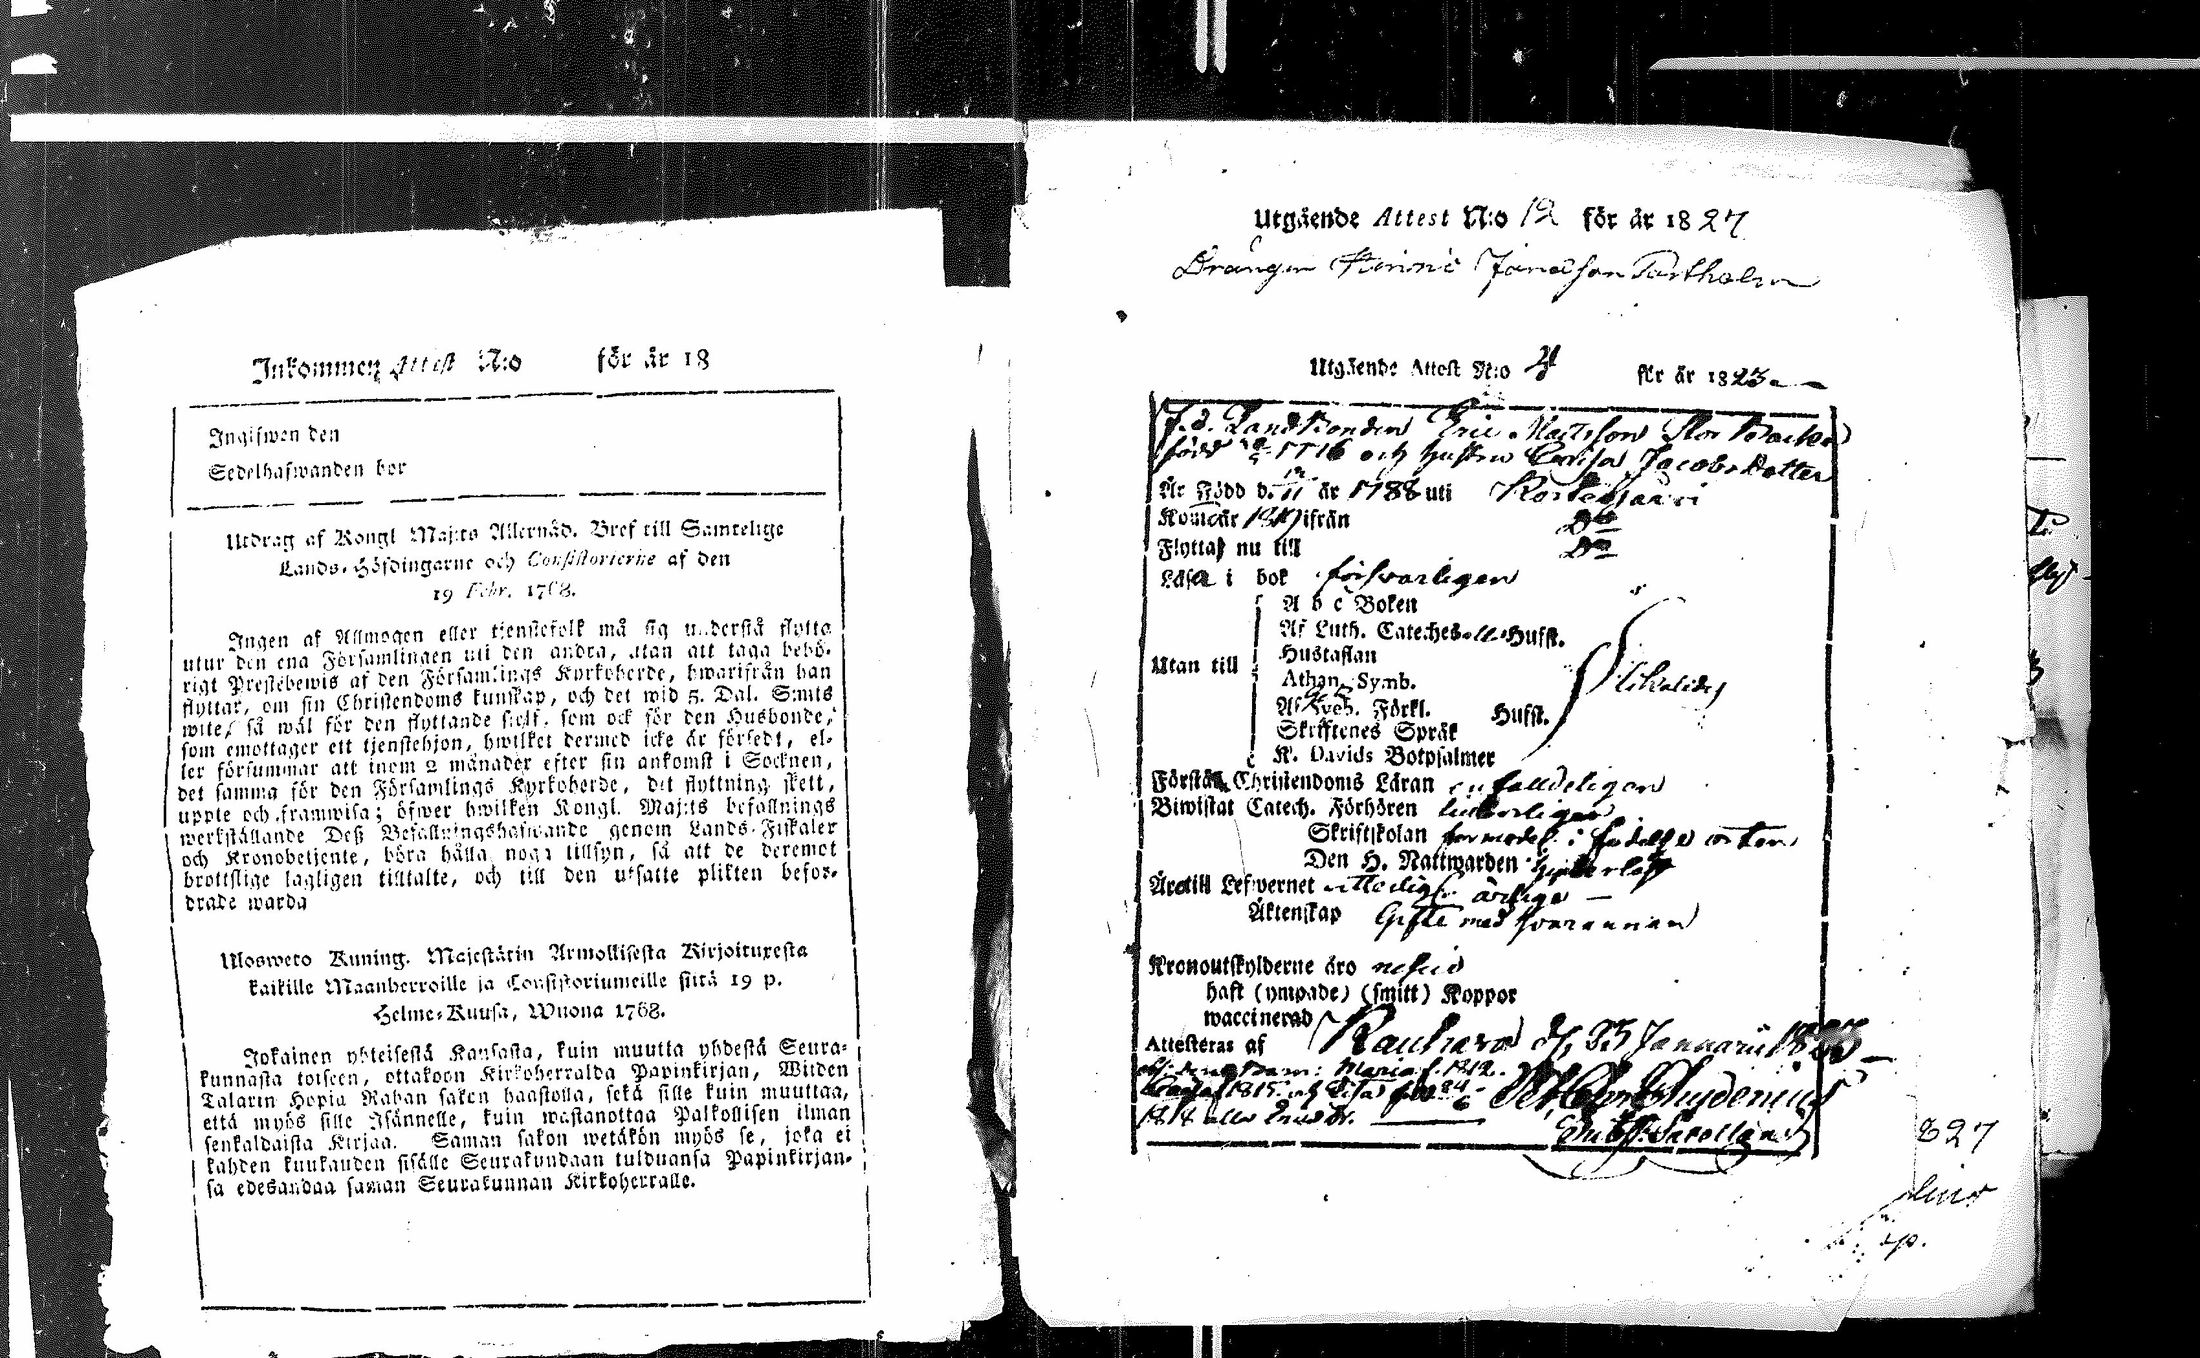 Inkommen Attest N:o för år 18
Ingifwen den
Sedelhafwanden bor
Utdrag af Kongl Maj:ts Allernåd. Bref till Samtelige
Lands-Höfdingarne och Consistorierne af den
19 Febr. 1768.
Ingen af Allmogen eller tjenstefolk må sig understå flytta
utur den ena Församlingen uti den andra, utan att taga behö-
rigt Prestebewis af den Församlings Kyrkoherde, hwarifrån han
flyttar, om sin Christendoms kunskap, och det wid 5. Dal. S:mts
wite, så wäl för den flyttande sielf, som ock för den Husbonde,
som emottager ett tjenstehjon, hwilket dermed icke är försedt, el-
ler försummar att inom 2 månader efter sin ankomst i Socknen,
det samma för den Församlings Kyrkoherde, dit flyttning skett,
uppte och framwisa; öfwer hwilken Kongl. Maj:ts befallnings
werkställande Deß Befallningshafwande genom Lands-Fiskaler
och Kronobetjente, böra hålla noga tillsyn, så att de deremot
brottslige lagligen tilltalte, och till den utsatte plikten befor-
drade warda
Ulosweto Kuning. Majestätin Armollisesta Kirjoituxesta
kaikille Maanherroille ja Consistoriumeille siitä 19 p.
Helme-Kuusa, Wuona 1768.
Jokainen yhteisestä Kansasta, kuin muutta yhdestä Seura-
kunnasta toiseen, ottakoon Kirkoherralda Papinkirjan, Wiiden
Talarin Hopia Rahan saken haastolla, sekä sille kuin muuttaa,
että myös sille Isännelle, kuin wastanottaa Palkollisen ilman
senkaldaista Kirjaa. Saman sakon wetäkön myös se, joka ei
kahden kuukauden sisälle Seurakundaan tulduansa Papinkirjan-
sa edesandaa saman Seurakunnan Kirkoherralle.
Utgående Attest N:o 12 för år 1827
Drängen Jonasson
Utgående Attest N:o 4 för år 1823
f.d. Landbonden Eric Mattsson Stor Backa
född 1776 och hustru Carisa Jacobs Dotter
Är Född d. 12/11 år 1788 uti Kortesjärvi
Kom år 1817 ifrån Do
Flyttar nu till Do
Läsa i bok försvarligen
A b c Boken
Af Luth. Cateches Husft.
Hustaflan
Utan till Athan. Symb. likaledes
Af Sveb. Förkl. Husft.
Skriftenes Språk
K. Davids Botpsalmer
Förstå Christendoms Läran enfalldeligen
Biwistat Catech. Förhören
Skriftskolan i
Den H. Nattwarden
Äro till Lefwernet ärliga
Äktenskap Gifte med hvarannan
Kronoutskylderne äro
haft (ympade) (smitt) Koppor
waccinerad
Attesteras af Kauhava d. 25 Januarii 1823
Maria f. 1812.
1815 och Lisa
1818
827